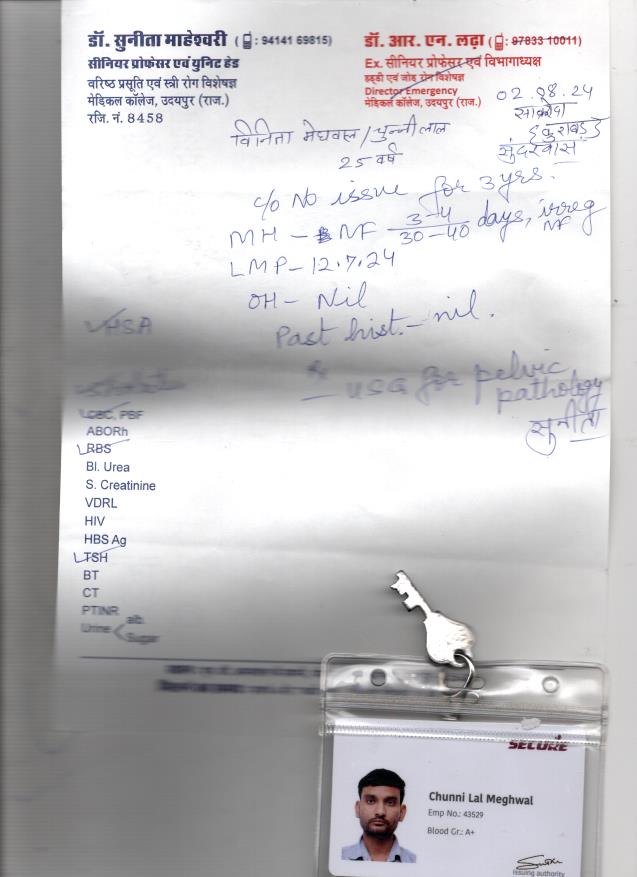 डॉ. सुनीता माहेश्वरी (: 94141 69815)
सीनियर प्रोफेसर एवं यूनिट हेड
वरिष्ठ प्रसूति एवं स्त्री रोग विशेषज्ञ
मेडिकल कॉलेज, उदयपुर (राज.)
रजि. नं. 8458
डॉ. आर. एन. लढ़ा (: 97833 10011)
Ex. सीनियर प्रोफेसर एवं विभागाध्यक्ष
हड्डी एवं जोड़ रोग विशेषज्ञ
Director Emergency
मेडिकल कॉलेज, उदयपुर (राज.)
02.08.24
सुंदरवास
विनिता मेघवाल / चुन्नीलाल
25 वर्ष
c/o No issue for 3 yrs.
MH - NF 3-4/30-40 days, irreg
NF
LMP - 12.7.24
OH - Nil
Past hist. - nil.
HSA
USG for pelvic
pathology
सुनीता
CBC, PBF
ABORh
RBS
Bl. Urea
S. Creatinine
VDRL
HIV
HBS Ag
TSH
BT
CT
PTINR
Urine < alb.
Sugar
SECURE
Chunni Lal Meghwal
Emp No.: 43529
Blood Gr.: A+
Issuing authority